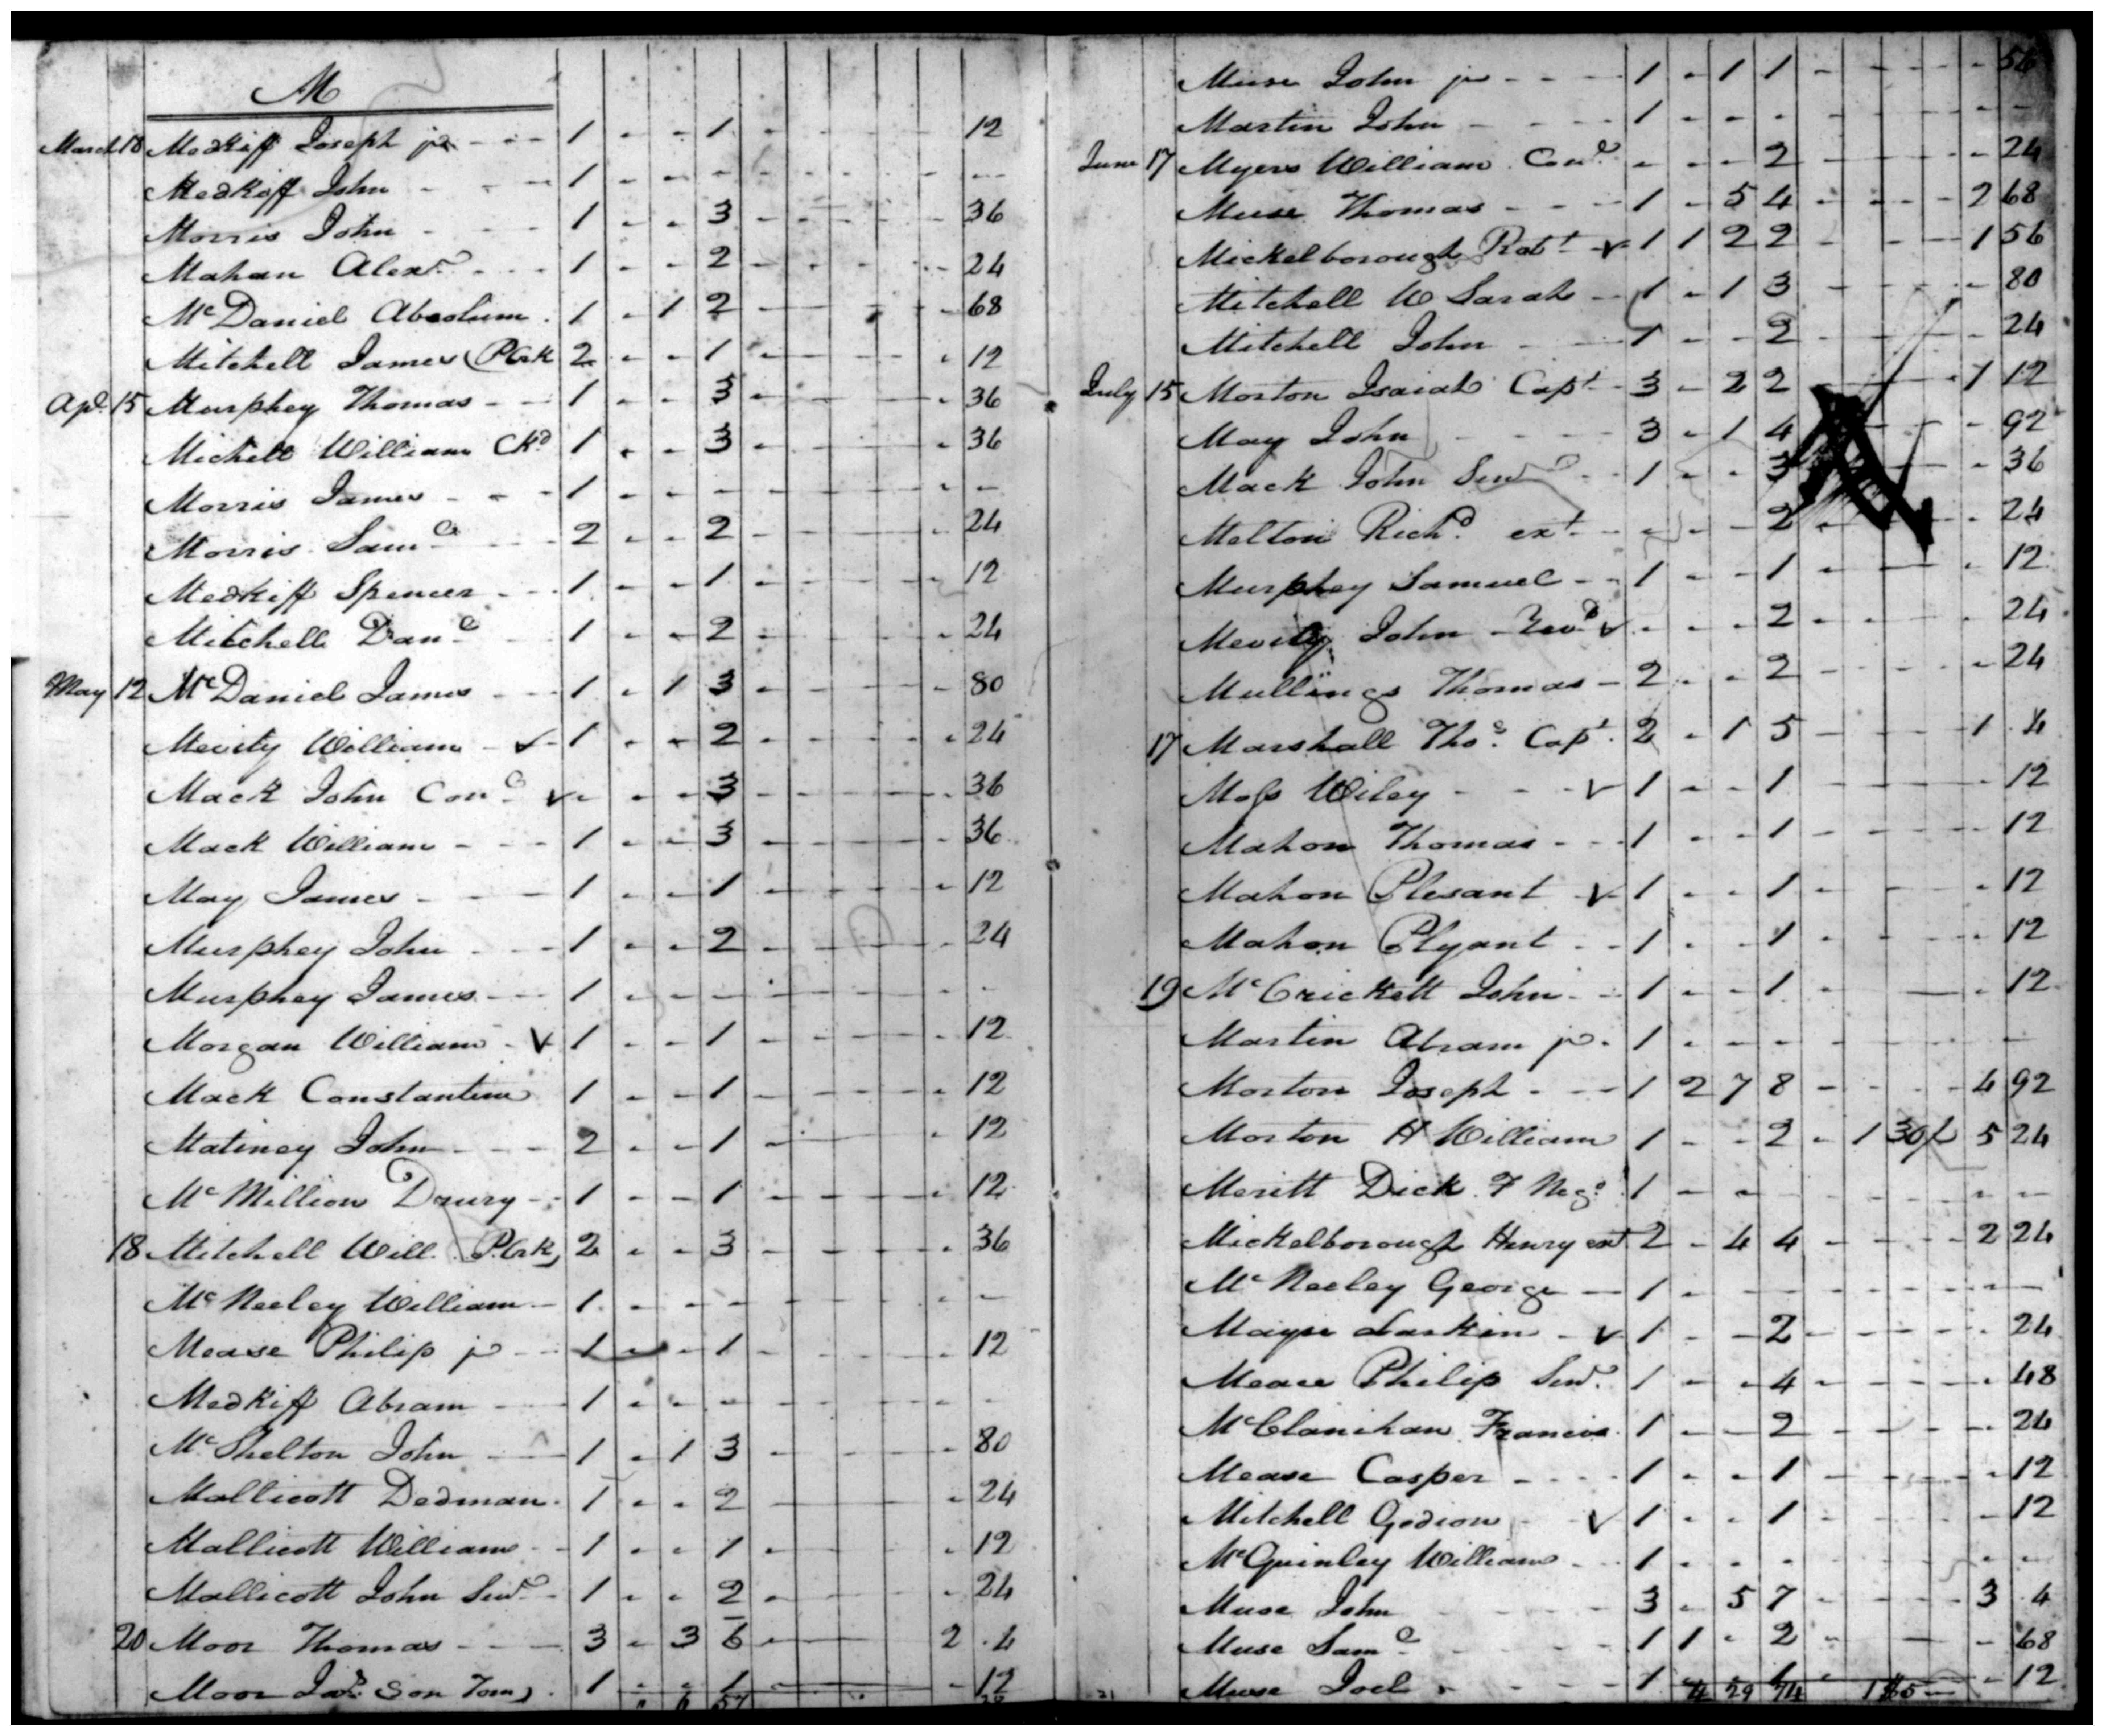 M
March 18 Medkiff Joseph jr - - - 1 - - 1 - - - - - 12
Medkiff John - - - 1 - - - - - - - - --
Morris John - - - 1 - - 3 - - - - - 36
Mahan Alexr. - - - 1 - - 2 - - - - - 24
McDaniel Absolum . 1 - 1 2 - - - - - 68
Mitchell James (P Crk 2 - - 1 - - - - - 12
Apl. 15 Murphey Thomas - - 1 - - 3 - - - - - 36
Michell William Ckd 1 - - 3 - - - - - 36
Morris James - - - 1 - - - - - - - - -
Morris Saml. - - - 2 - - 2 - - - - - 24
Medkiff Spencer - - - 1 - - 1 - - - - - 12
Mitchell Danl. - - 1 - - 2 - - - - - 24
May 12 McDaniel James - - - 1 - 1 3 - - - - - 80
Mevity William - v - 1 - - 2 - - - - - 24
Mack John Cond. v - - - 3 - - - - - 36
Mack William - - - 1 - - 3 - - - - - 36
May James - - - 1 - - 1 - - - - - 12
Murphey John - - - 1 - - 2 - - - - - 24
Murphey James - - 1 - - - - - - - - -
Morgan William - v 1 - - 1 - - - - - 12
Mack Constantine 1 - - 1 - - - - - 12
Matiney John - - - 2 - - 1 - - - - - 12
McMillion Drury - - 1 - - 1 - - - - - 12
18 Mitchell Will. P. Crk, 2 - - 3 - - - - - 36
McNeeley William - 1 - - - - - - - - -
Mease Philip jr - - 1 - - 1 - - - - - 12
Medkiff Abram - - 1 - - - - - - - - -
McShelton John - - 1 - 1 3 - - - - - 80
Mallicott Dedman - 1 - - 2 - - - - - 24
Mallicott William - - 1 - - 1 - - - - - 12
Mallicott John Senr. - 1 - - 2 - - - - - 24
20 Moor Thomas - - - 3 - 3 6 - - - - 2 . 4
Moor Jas. Son Tom) . 1 - - 1 - - - - - 12
6 57
Muse John jr - - - 1 - 1 1 - - - - - 56
Martin John - - - - 1 - - - - - - - - -
June 17 Myers William Cond. - - - 2 - - - - - 24
Muse Thomas - - - 1 - 5 4 - - - - 2 68
Mickelborough Robt. v 1 1 2 2 - - - - 1 56
Mitchell W Sarah - 1 - 1 3 - - - - - 80
Mitchell John - - 1 - - 2 - - - - - 24
July 15 Morton Isaiah Capt. - 3 - 2 2 - - - 1 12
May John - - - - 3 - 1 4 - - - 92
Mack John Senr. - - 1 - - 3 - - - 36
Melton Richd. ext. - - - - 2 - - - 24
Murphey Samuel - - 1 - - 1 - - - - - 12
Mevity John v - - - 2 - - - - - 24
Mullings Thomas - 2 - - 2 - - - - - 24
17 Marshall Thos. Capt. 2 - 1 5 - - - - 1 . 4
Moss Wiley - - - v 1 - - 1 - - - - - 12
Mahon Thomas - - - 1 - - 1 - - - - - 12
Mahon Plesant v 1 - - 1 - - - - - 12
Mahon Plyant - - 1 - - 1 - - - - - 12
19 McCrickett John - - 1 - - 1 - - - - - 12
Martin Abram jr. 1 - - - - - - - - -
Morton Joseph - - - 1 2 7 8 - - - - 4 92
Morton H William 1 - - 2 - 1 30£ 5 24
Meritt Dick F Nego. 1 - - - - - - - - -
Mickelborough Henry est 2 - 4 4 - - - - 2 24
McNeeley George - 1 - - - - - - - - -
Mayse Larkin - v 1 - - 2 - - - - - 24
Meace Philip Senr. 1 - - 4 - - - - - 48
McClanihan Francis 1 - - 2 - - - - - 24
Mease Casper - - - 1 - - 1 - - - - - 12
Mitchell Gedion - v 1 - - 1 - - - - - 12
McGuinley William - - 1 - - - - - - - - -
Muse John - - - - 3 - 5 7 - - - - 3 . 4
Muse Saml. - - - - 1 1 - 2 - - - 68
Muse Joel - - - - - 1 - - 1 - - - - - 12
4 29 74